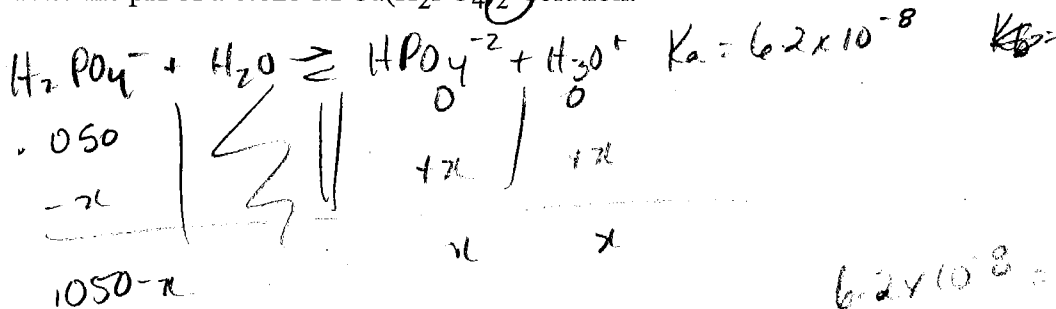 H₂PO₄⁻ + H₂O ⇌ HPO₄⁻² + H₃O⁺ Ka = 6.2 x 10⁻⁸
.050 0 0
-x +x +x
.050-x x x
6.2 x 10⁻⁸ =